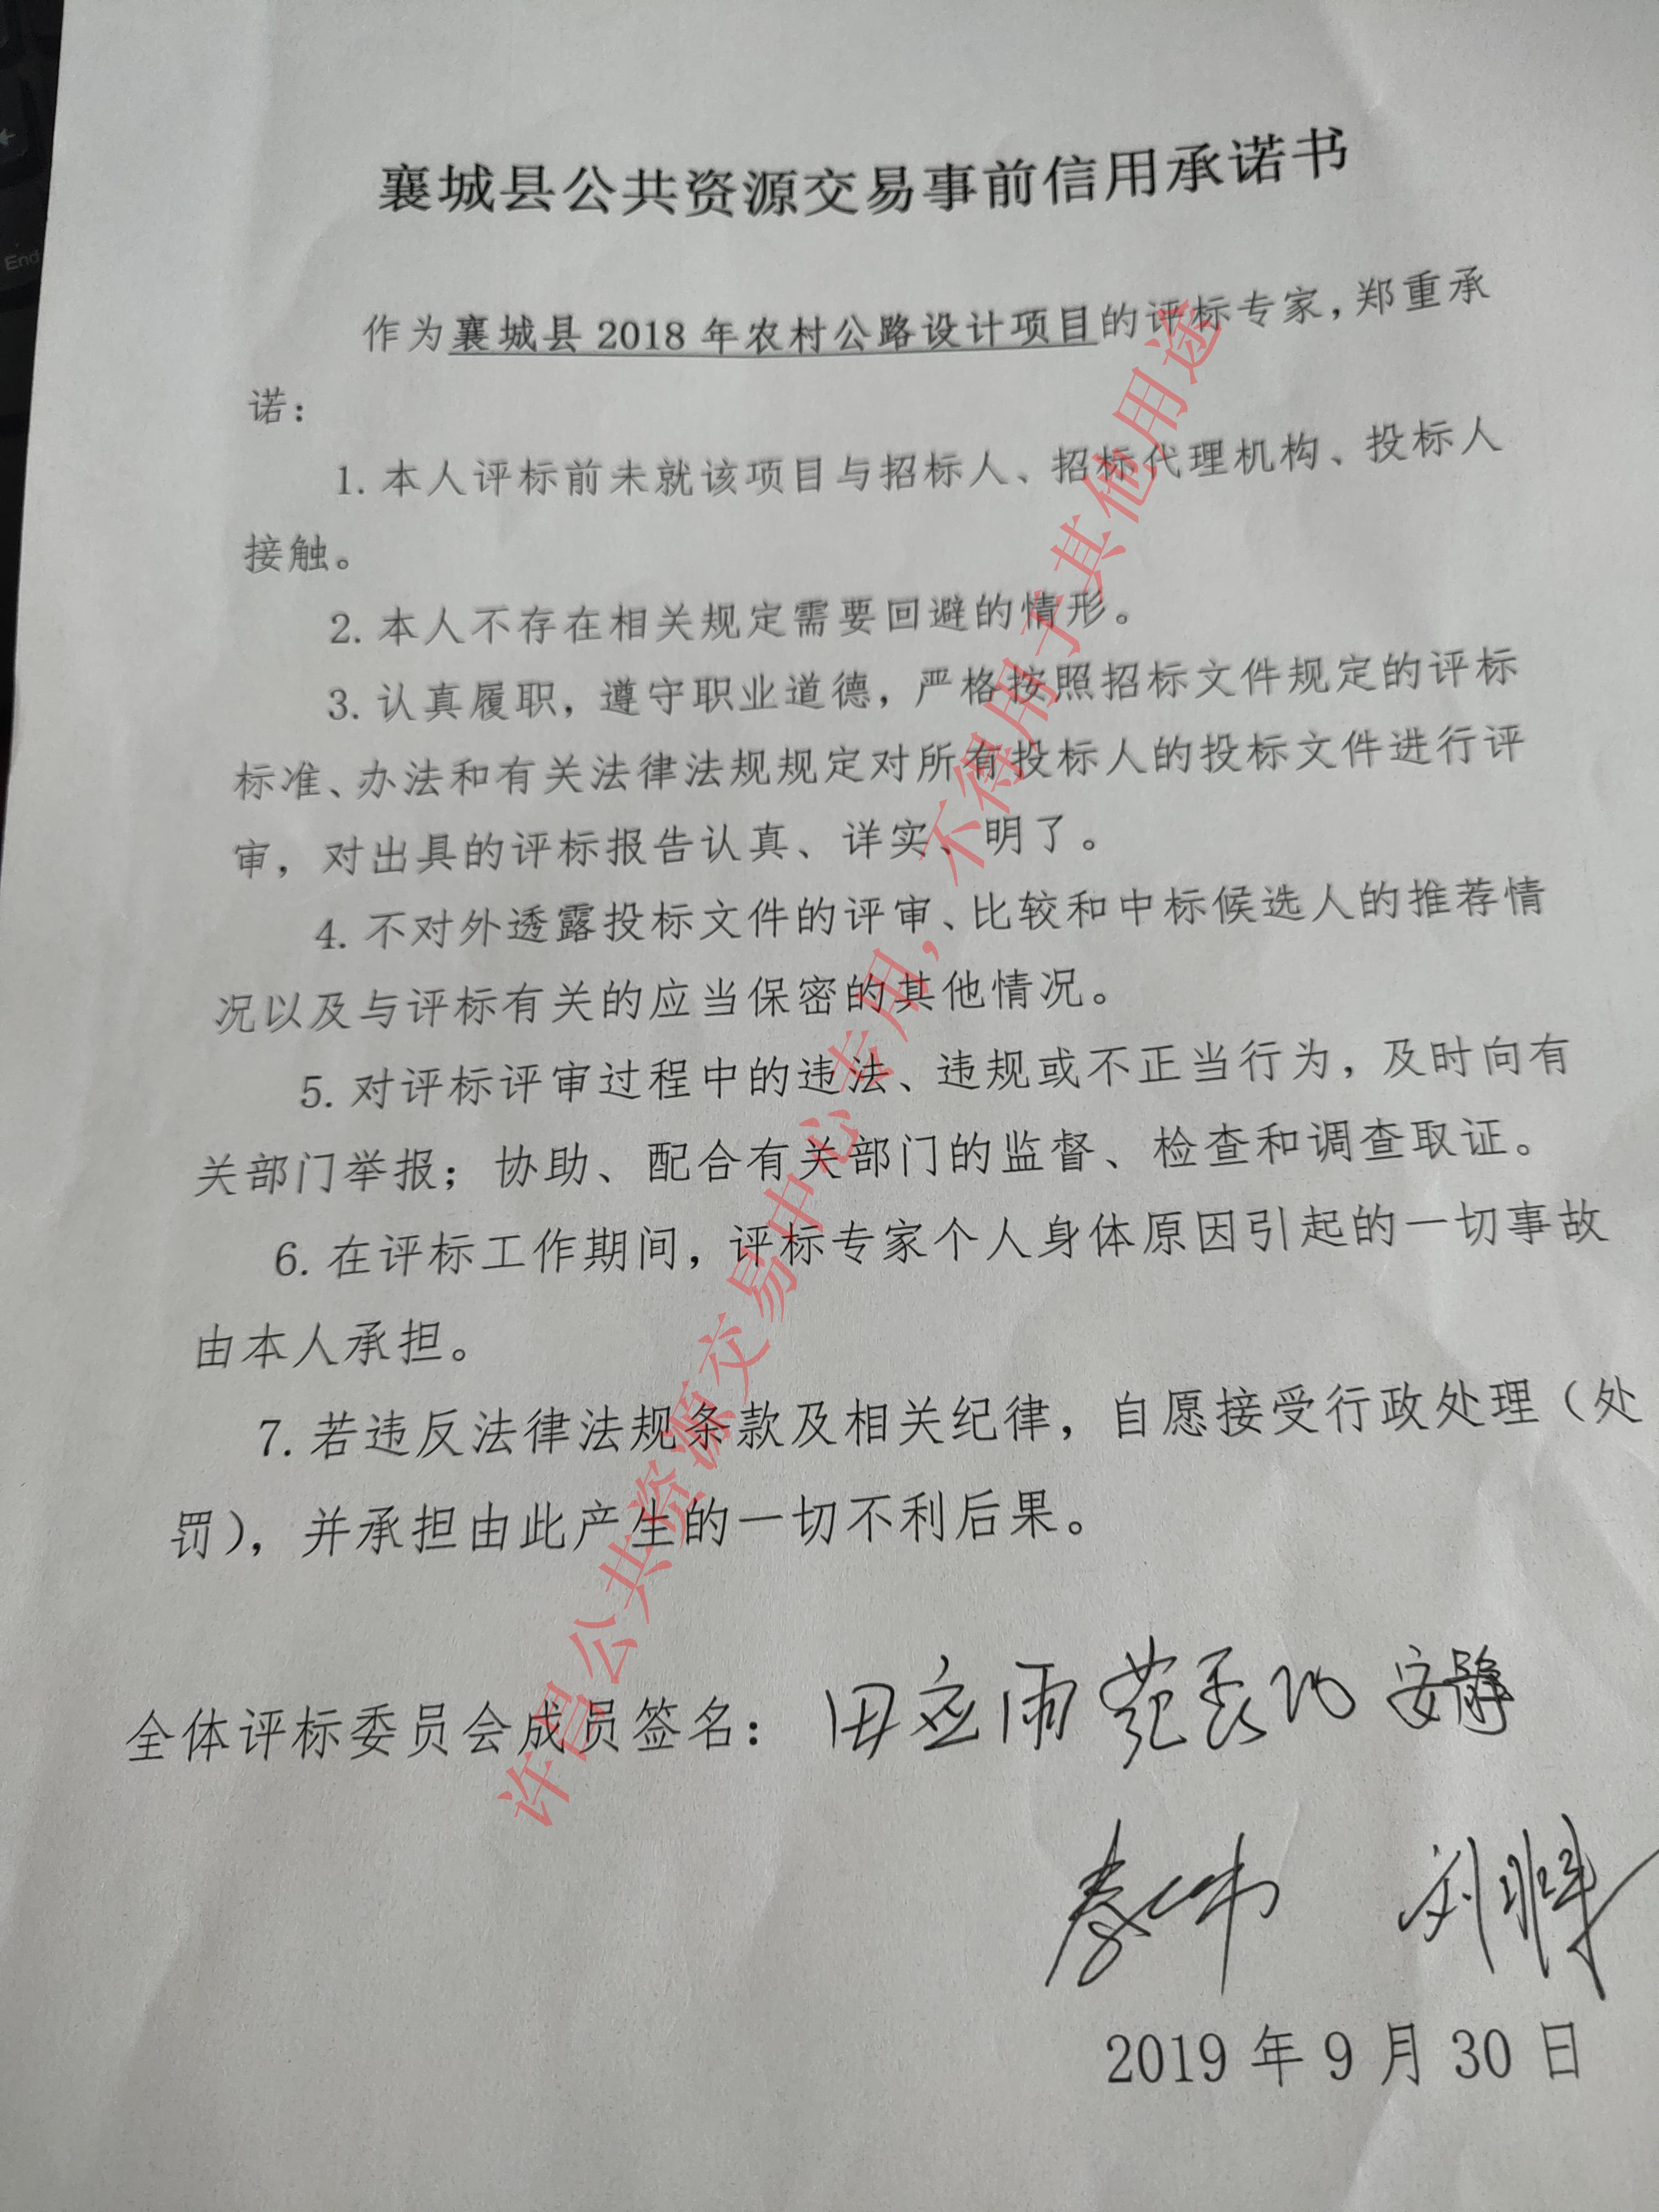 襄城县公共资源交易事前信用承诺书
作为襄城县 2018 年农村公路设计项目的评标专家，郑重承
诺：
1. 本人评标前未就该项目与招标人、招标代理机构、投标人
接触。
2. 本人不存在相关规定需要回避的情形。
3. 认真履职，遵守职业道德，严格按照招标文件规定的评标
标准、办法和有关法律法规规定对所有投标人的投标文件进行评
审，对出具的评标报告认真、详实、明了。
4. 不对外透露投标文件的评审、比较和中标候选人的推荐情
况以及与评标有关的应当保密的其他情况。
5. 对评标评审过程中的违法、违规或不正当行为，及时向有
关部门举报；协助、配合有关部门的监督、检查和调查取证。
6. 在评标工作期间，评标专家个人身体原因引起的一切事故
由本人承担。
7. 若违反法律法规条款及相关纪律，自愿接受行政处理（处
罚），并承担由此产生的一切不利后果。
全体评标委员会成员签名：田应雨 安静
2019 年 9 月 30 日
许昌公共资源交易中心专用，不得用于其他用途
End